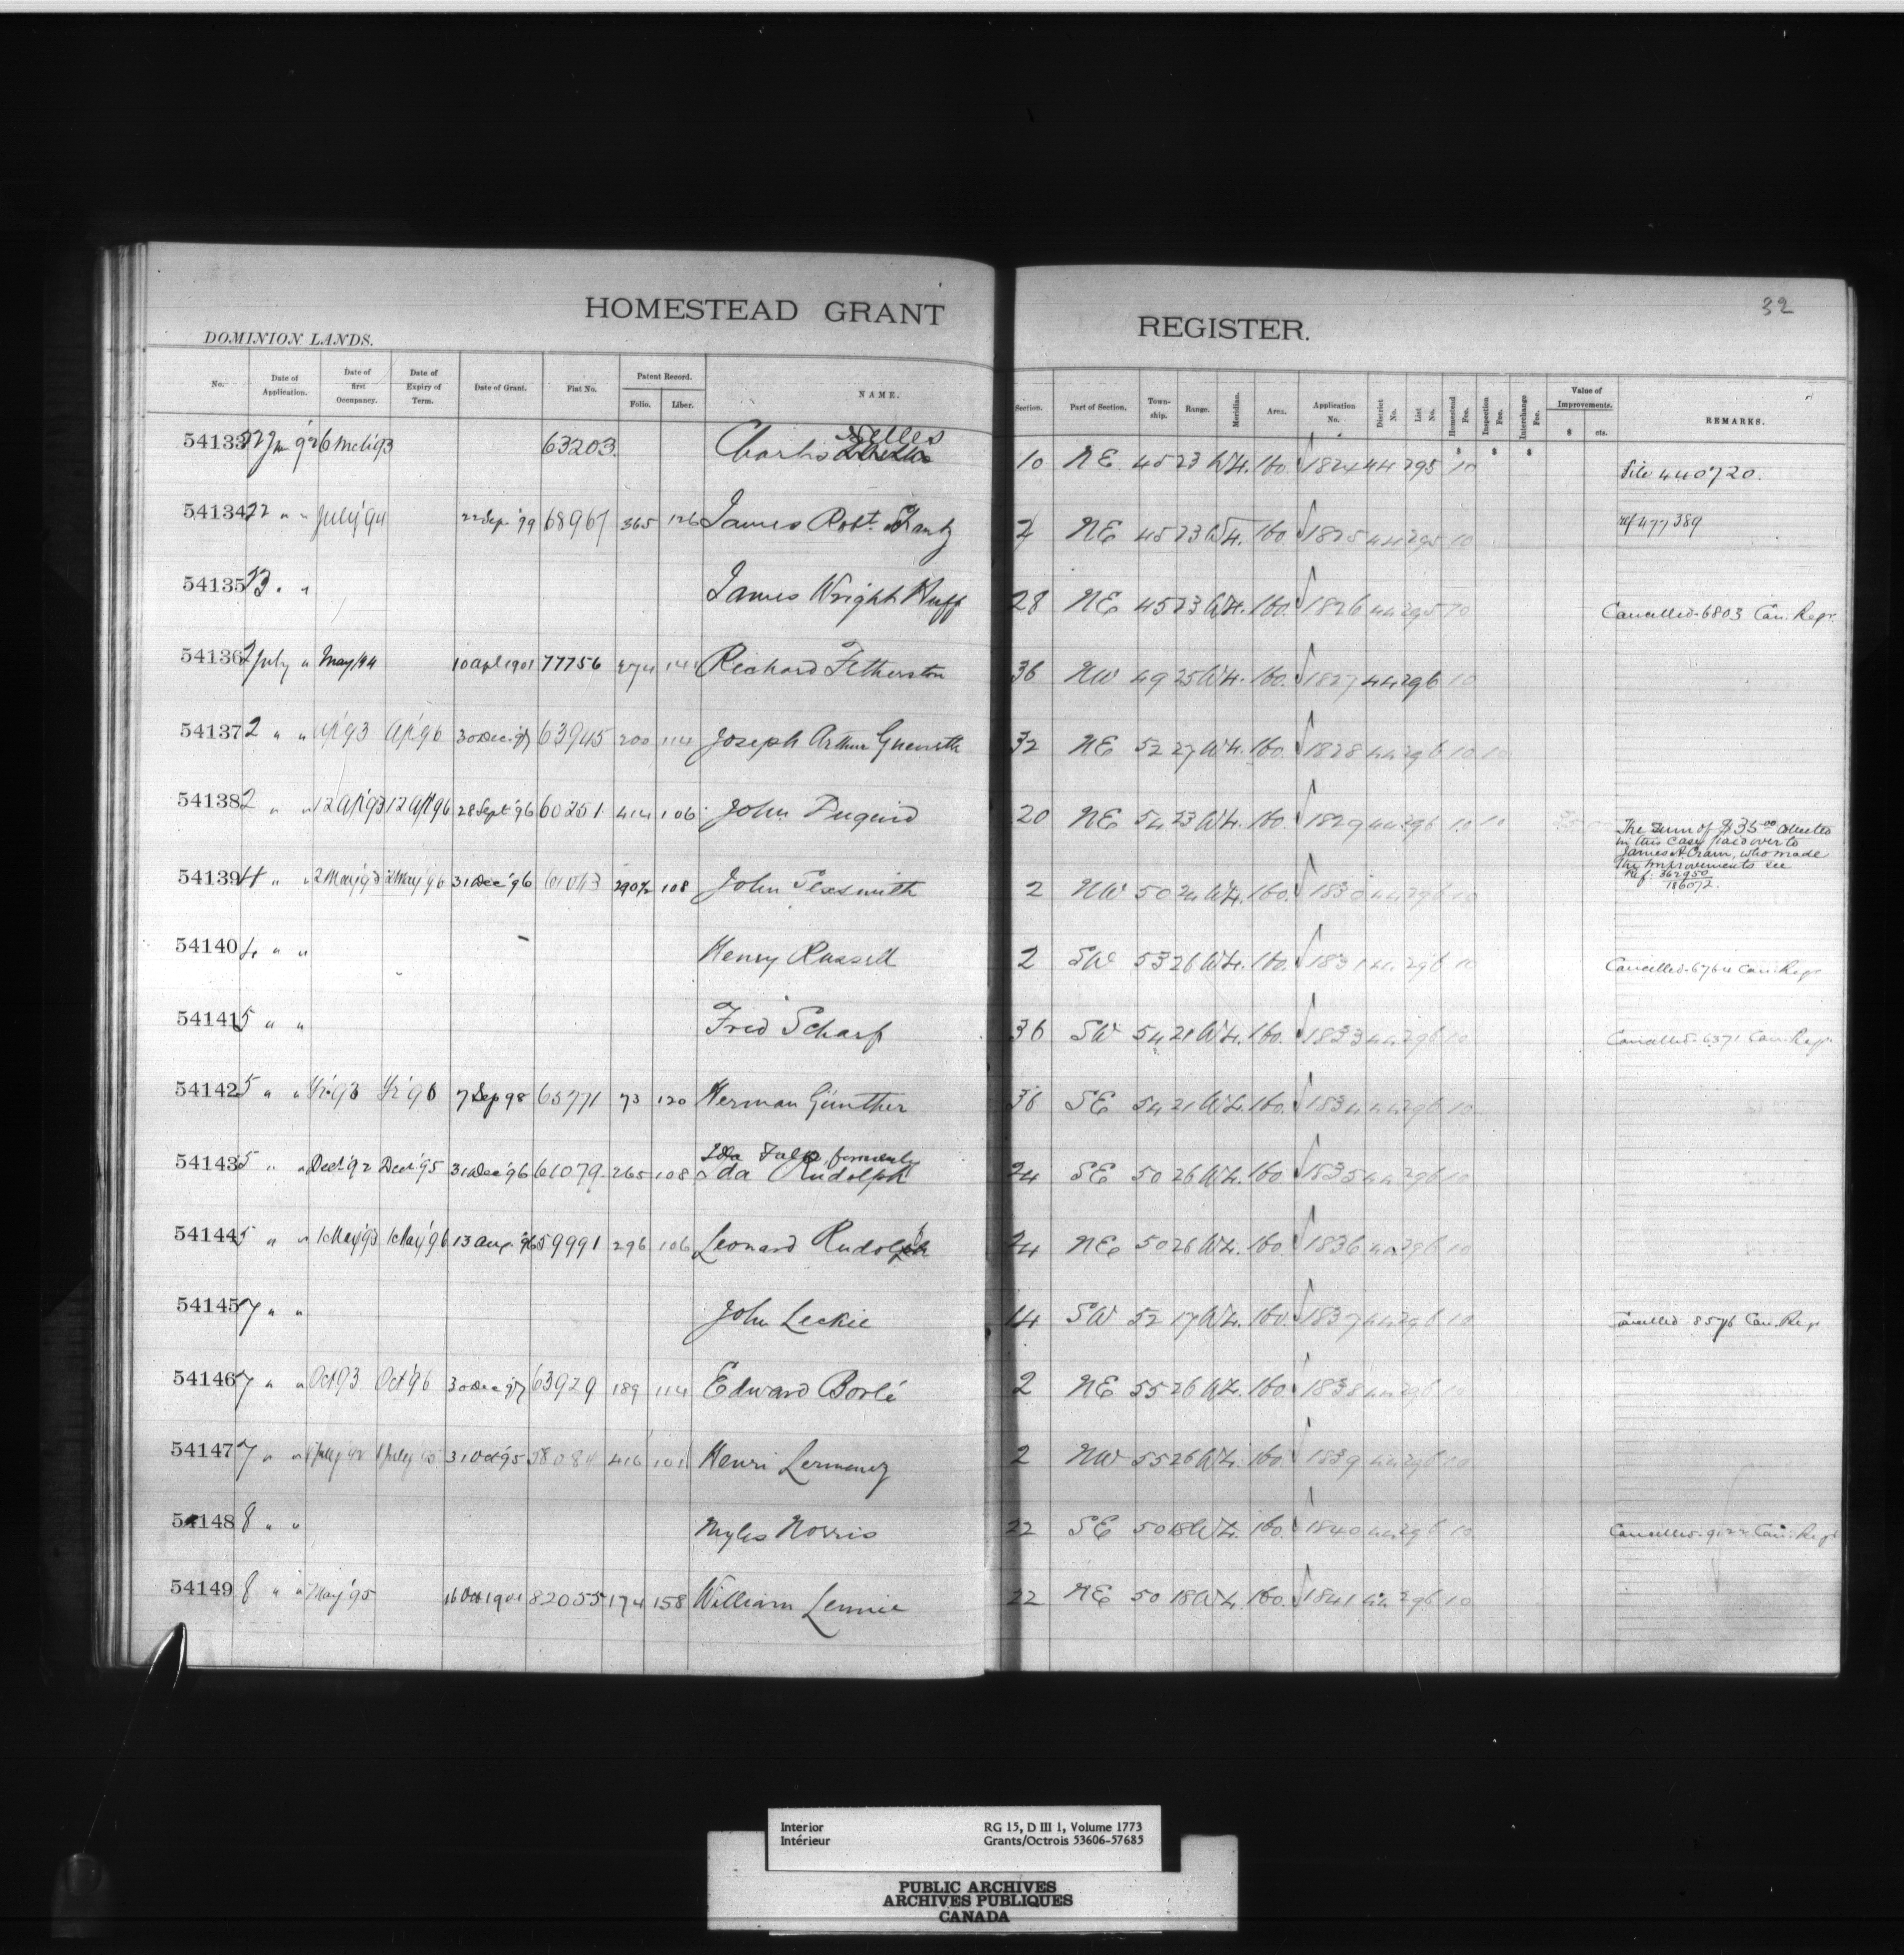 32
HOMESTEAD GRANT REGISTER.
DOMINION LANDS.
No. Date of Application. Date of first Occupancy. Date of Expiry of Term. Date of Grant. Fiat No. Patent Record. Folio. Liber. NAME. Section. Part of Section. Town-ship. Range. Meridian. Area. Application No. District No. List No. Homestead Fee. Inspection Fee. Interchange Fee. Value of Improvements. $ cts. REMARKS.
$ $ $
54133 63203 Charles Nelles 10 NE 45 23 W4. 160. 1824 44 295 10 File 440720.
54134 22 " " July '94 22 Sep. '99 68967 365 126 James Robt. NE 45 23 W4. 160. 1825 44 295 10 ref 477389
54135 " " James Wright Huff 28 NE 45 23 W4. 160. 1826 44 295 10 Cancelled 6803 Can. Regr.
54136 2 July " May '94 10 Apl 1901 77756 274 141 Richard Fetherston 36 NW 49 25 W4. 160. 1827 44 296 10
54137 2 " " Ap '93 Ap '96 30 Dec. '97 63945 200 114 Joseph Arthur 32 NE 52 27 W4. 160. 1828 44 296 10 10
54138 2 " " 12 Ap '93 12 Apl 96 28 Sept. '96 60251 414 106 John Duguid 20 NE 54 23 W4. 160. 1829 44 296 10 10
The sum of $35.00 collected
in this case paid over to
James A. Cram, who made
the improvements see
Ref. 362950
186072.
54139 4 " " 2 May '93 2 May '96 31 Dec '96 61043 290½ 108 John Sexsmith 2 NW 50 24 W4. 160. 1830 44 296 10
54140 4 " " Henry Russell 2 SW 53 26 W4. 160. 1831 44 296 10 Cancelled 6764 Can. Regr
54141 5 " " Fred Scharf 36 SW 54 21 W4. 160. 1833 44 296 10 Cancelled 6371 Can. Regr.
54142 5 " " Yr. '93 Yr '96 7 Sep 98 65771 73 120 Herman Günther 36 SE 54 21 W4. 160. 1834 44 296 10
Ida Falp, formerly
54143 5 " " Dec. '92 Dec. '95 31 Dec '96 61079 265 108 Ida Rudolph 24 SE 50 26 W4. 160. 1835 44 296 10
54144 5 " " 1 May '93 1 May '96 13 Aug. '96 59991 296 106 Leonard Rudolph 24 NE 50 26 W4. 160. 1836 44 296 10
54145 7 " " John Leckie 14 SW 52 17 W4. 160. 1837 44 296 10 Cancelled 8576 Can. Reg.
54146 7 " " Oct 93 Oct '96 30 Dec '97 63929 189 114 Edward Borlé 2 NE 55 26 W4. 160. 1838 44 296 10
54147 7 " " 31 Oct '95 416 101 Henri 2 NW 55 26 W4. 160. 1839 44 296 10
54148 8 " " Myles Norris 22 SE 50 18 W4. 160. 1840 44 296 10 Cancelled 9122 Can. Regr
54149 8 " " May '95 16 Oct 1901 82055 174 158 William Lennie 22 NE 50 18 W4. 160. 1841 44 296 10
Interior RG 15, D III 1, Volume 1773
Intérieur Grants/Octrois 53606-57685
PUBLIC ARCHIVES
ARCHIVES PUBLIQUES
CANADA